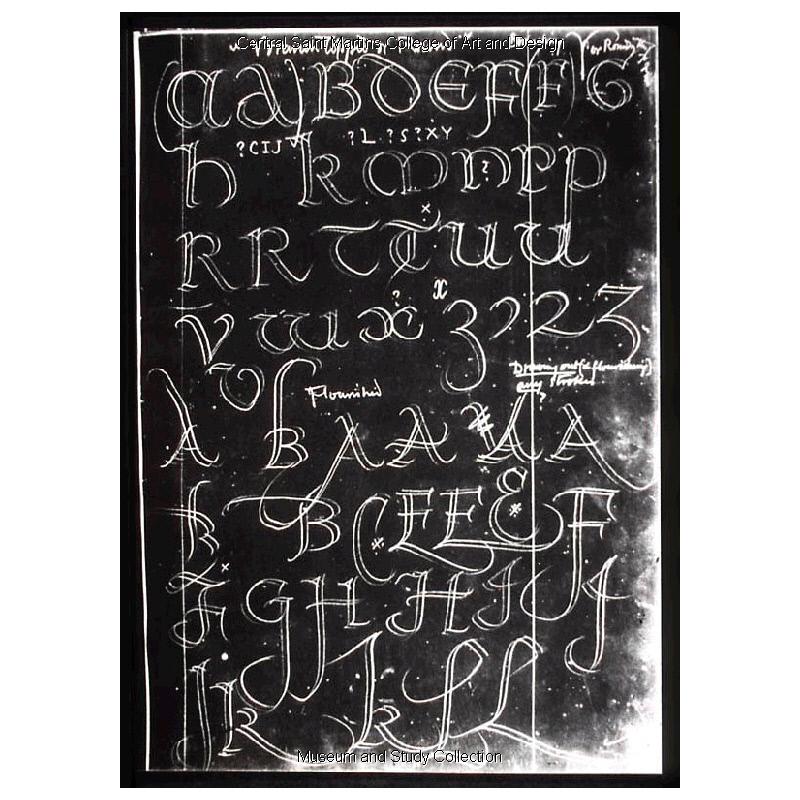 Central Saint Martins College of Art and Design
a A B D E F (F) G
?CIJ ?L ?S ?XY
h k m n ? P P
x
R R T T U U
? X
V W X 3 2 2 3
V
Drawing out (& flourishing)
any strokes
?
Flourished
A B A A A A
B B C E E E F
x
F G H H I J
J K K L L
Museum and Study Collection